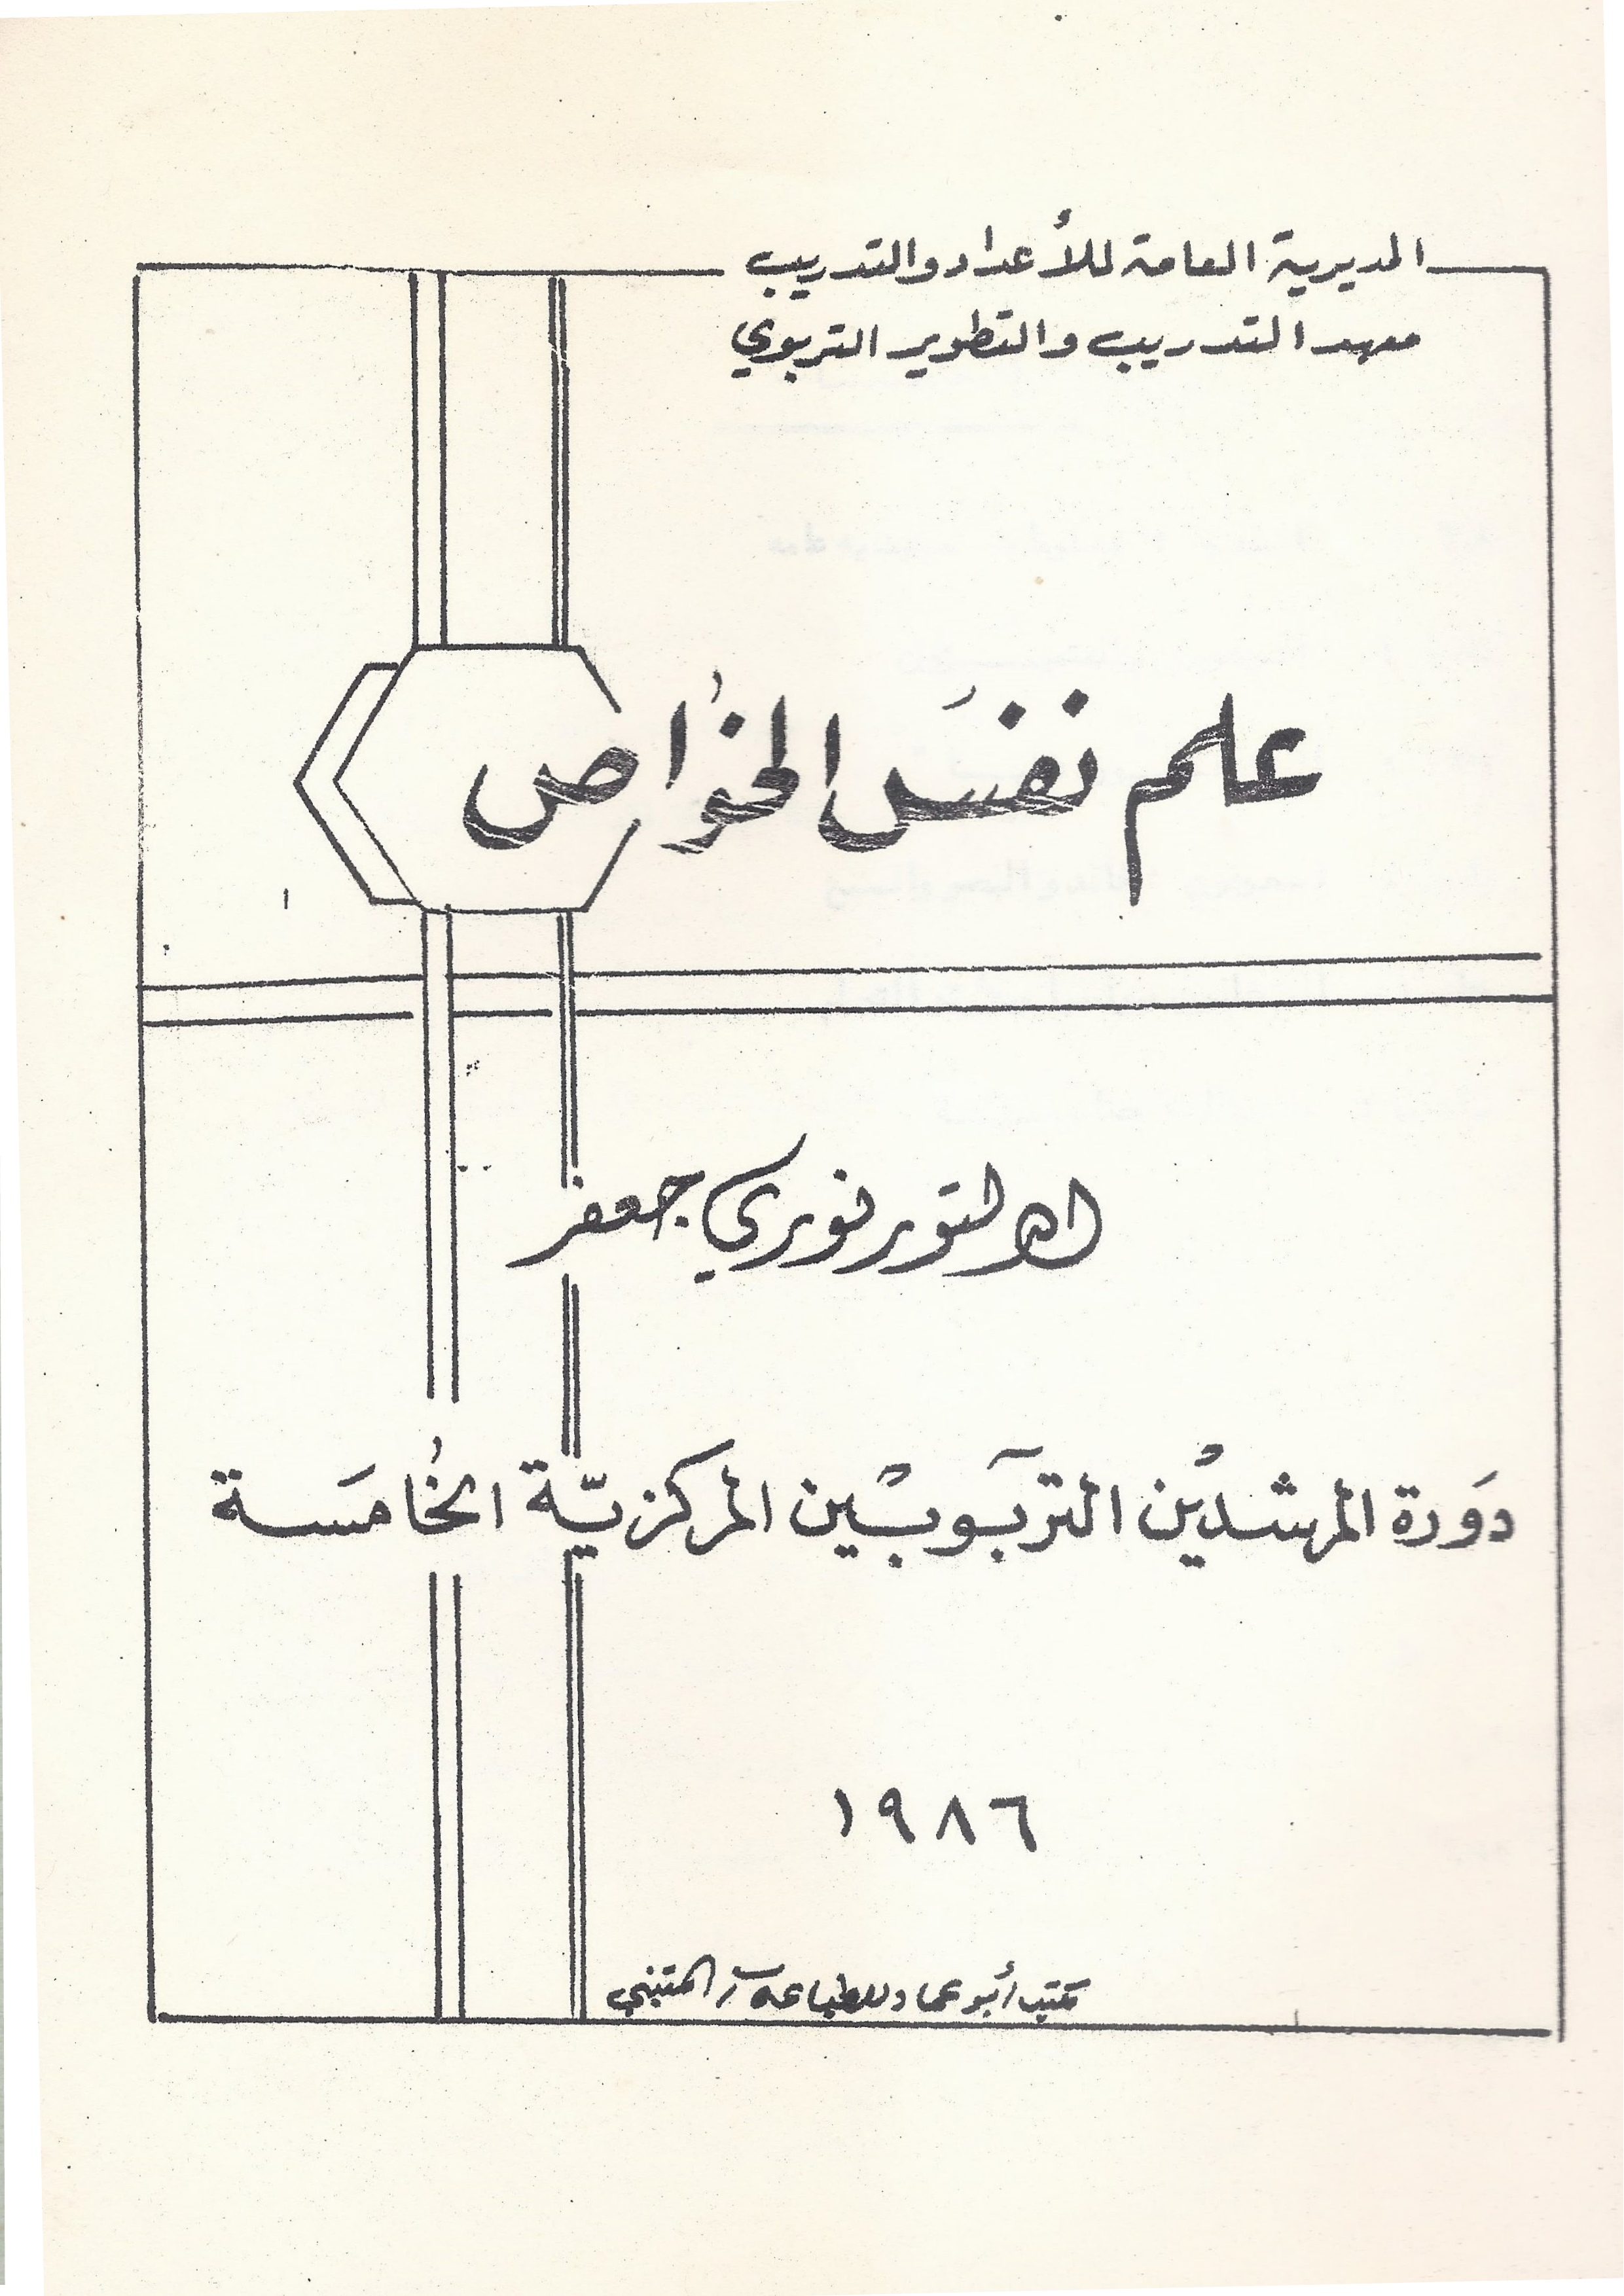 المديرية العامة للأعداد والتدريب
معهد التدريب والتطوير التربوي
علم نفس الخواص
الدكتور نوري جعفر
دورة المرشدين التربويين المركزية الخامسة
١٩٨٦
مكتب أبو عماد للطباعة المتنبي